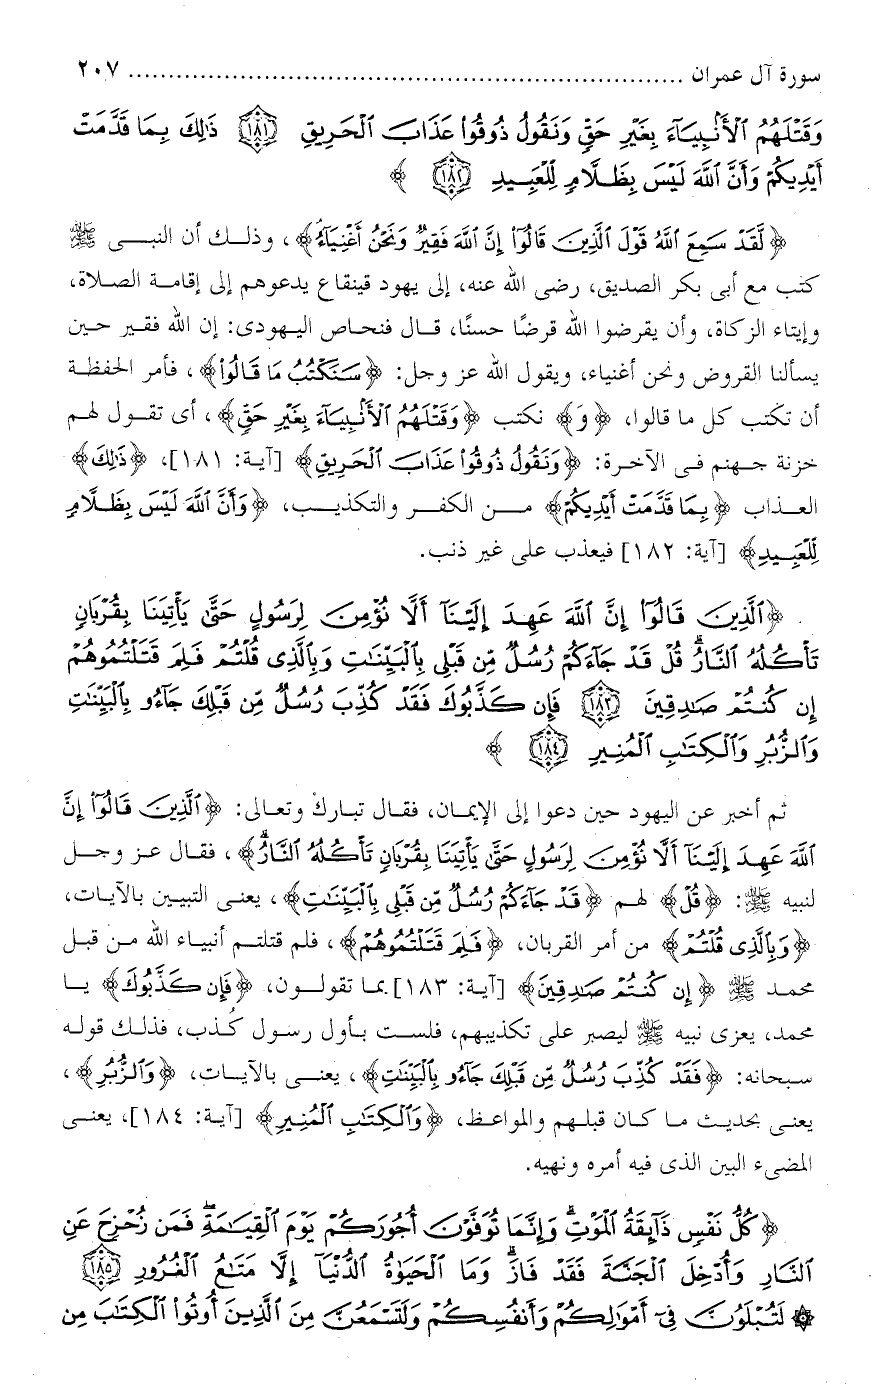 سورة آل عمران ............................................................ ٢٠٧
وَقَتْلَهُمُ الْأَنْبِيَاءَ بِغَيْرِ حَقٍّ وَنَقُولُ ذُوقُوا عَذَابَ الْحَرِيقِ ﴿١٨١﴾ ذَٰلِكَ بِمَا قَدَّمَتْ
أَيْدِيكُمْ وَأَنَّ اللَّهَ لَيْسَ بِظَلَّامٍ لِلْعَبِيدِ ﴿١٨٢﴾ ﴾
﴿لَّقَدْ سَمِعَ اللَّهُ قَوْلَ الَّذِينَ قَالُوا إِنَّ اللَّهَ فَقِيرٌ وَنَحْنُ أَغْنِيَاءُ﴾، وذلك أن النبى ﷺ
كتب مع أبى بكر الصديق، رضى الله عنه، إلى يهود قينقاع يدعوهم إلى إقامة الصلاة،
وإيتاء الزكاة، وأن يقرضوا الله قرضًا حسنًا، قال فنحاص اليهودى: إن الله فقير حين
يسألنا القروض ونحن أغنياء، ويقول الله عز وجل: ﴿سَنَكْتُبُ مَا قَالُوا﴾، فأمر الحفظة
أن تكتب كل ما قالوا، ﴿وَ﴾ نكتب ﴿وَقَتْلَهُمُ الْأَنْبِيَاءَ بِغَيْرِ حَقٍّ﴾، أى تقول لهم
خزنة جهنم فى الآخرة: ﴿وَنَقُولُ ذُوقُوا عَذَابَ الْحَرِيقِ﴾ [آية: ١٨١]، ﴿ذَٰلِكَ﴾
العذاب ﴿بِمَا قَدَّمَتْ أَيْدِيكُمْ﴾ من الكفر والتكذيب، ﴿وَأَنَّ اللَّهَ لَيْسَ بِظَلَّامٍ
لِلْعَبِيدِ﴾ [آية: ١٨٢] فيعذب على غير ذنب.
﴿الَّذِينَ قَالُوا إِنَّ اللَّهَ عَهِدَ إِلَيْنَا أَلَّا نُؤْمِنَ لِرَسُولٍ حَتَّىٰ يَأْتِيَنَا بِقُرْبَانٍ
تَأْكُلُهُ النَّارُ ۗ قُلْ قَدْ جَاءَكُمْ رُسُلٌ مِّن قَبْلِي بِالْبَيِّنَاتِ وَبِالَّذِي قُلْتُمْ فَلِمَ قَتَلْتُمُوهُمْ
إِن كُنتُمْ صَادِقِينَ ﴿١٨٣﴾ فَإِن كَذَّبُوكَ فَقَدْ كُذِّبَ رُسُلٌ مِّن قَبْلِكَ جَاءُو بِالْبَيِّنَاتِ
وَالزُّبُرِ وَالْكِتَابِ الْمُنِيرِ ﴿١٨٤﴾ ﴾
ثم أخبر عن اليهود حين دعوا إلى الإيمان، فقال تبارك وتعالى: ﴿الَّذِينَ قَالُوا إِنَّ
اللَّهَ عَهِدَ إِلَيْنَا أَلَّا نُؤْمِنَ لِرَسُولٍ حَتَّىٰ يَأْتِيَنَا بِقُرْبَانٍ تَأْكُلُهُ النَّارُ ۗ﴾، فقال عز وجل
لنبيه ﷺ: ﴿قُلْ﴾ لهم ﴿قَدْ جَاءَكُمْ رُسُلٌ مِّن قَبْلِي بِالْبَيِّنَاتِ﴾، يعنى التبيين بالآيات،
﴿وَبِالَّذِي قُلْتُمْ﴾ من أمر القربان، ﴿فَلِمَ قَتَلْتُمُوهُمْ﴾، فلم قتلتم أنبياء الله من قبل
محمد ﷺ ﴿إِن كُنتُمْ صَادِقِينَ﴾ [آية: ١٨٣] بما تقولون، ﴿فَإِن كَذَّبُوكَ﴾ يا
محمد، يعزى نبيه ﷺ ليصبر على تكذيبهم، فلست بأول رسول كُذب، فذلك قوله
سبحانه: ﴿فَقَدْ كُذِّبَ رُسُلٌ مِّن قَبْلِكَ جَاءُو بِالْبَيِّنَاتِ﴾، يعنى بالآيات، ﴿وَالزُّبُرِ﴾،
يعنى بحديث ما كان قبلهم والمواعظ، ﴿وَالْكِتَابِ الْمُنِيرِ﴾ [آية: ١٨٤]، يعنى
المضىء البين الذى فيه أمره ونهيه.
﴿كُلُّ نَفْسٍ ذَائِقَةُ الْمَوْتِ ۗ وَإِنَّمَا تُوَفَّوْنَ أُجُورَكُمْ يَوْمَ الْقِيَامَةِ ۖ فَمَن زُحْزِحَ عَنِ
النَّارِ وَأُدْخِلَ الْجَنَّةَ فَقَدْ فَازَ ۗ وَمَا الْحَيَاةُ الدُّنْيَا إِلَّا مَتَاعُ الْغُرُورِ ﴿١٨٥﴾
۞ لَتُبْلَوُنَّ فِي أَمْوَالِكُمْ وَأَنفُسِكُمْ وَلَتَسْمَعُنَّ مِنَ الَّذِينَ أُوتُوا الْكِتَابَ مِن